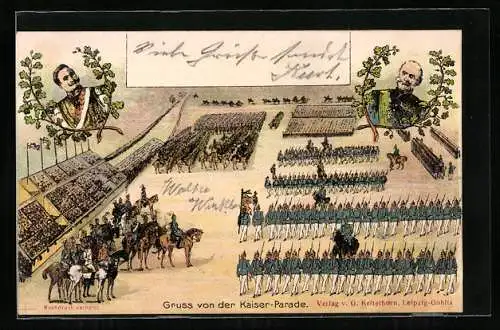 Viele Grüße sendet
Kurt.
Walter
Winkler
Gruss von der Kaiser-Parade.
Verlag v. G. Keiterborn, Leipzig-Gohlis
Nachdruck verboten